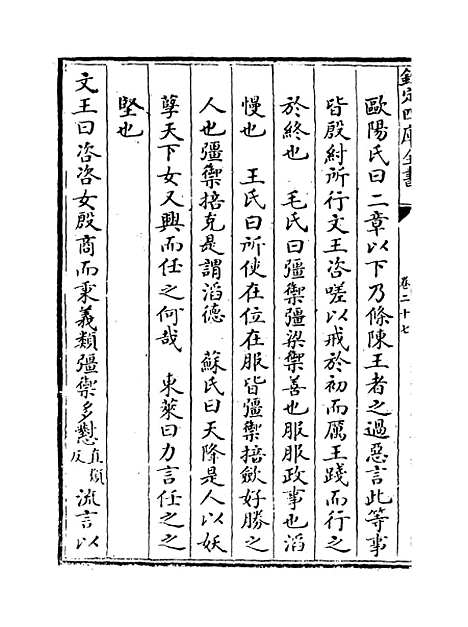 欽定四庫全書
卷二十七
歐陽氏曰二章以下乃條陳王者之過惡言此等事
皆殷紂所行文王咨嗟以戒於初而厲王踐而行之
於終也　毛氏曰彊禦彊梁禦善也服服政事也滔
慢也　王氏曰所使在位在服皆彊禦掊歛好勝之
人也彊禦掊克是謂滔德　蘇氏曰天降是人以妖
孽天下女又興而任之何哉　東萊曰力言任之之
堅也
文王曰咨咨女殷商而秉義類彊禦多懟直類反流言以